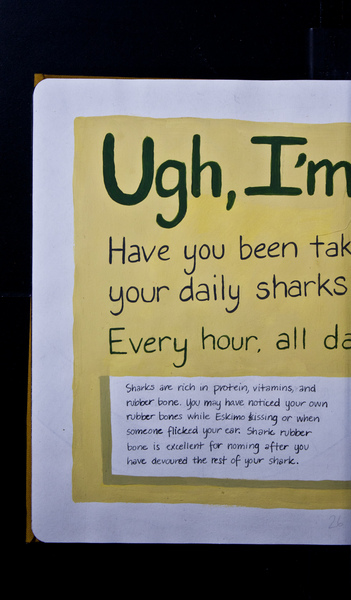 Ugh, I'm
Have you been tak
your daily sharks
Every hour, all da
Sharks are rich in protein, vitamins, and
rubber bone. You may have noticed your own
rubber bones while Eskimo kissing or when
someone flicked your ear. Shark rubber
bone is excellent for noming after you
have devoured the rest of your shark.
26